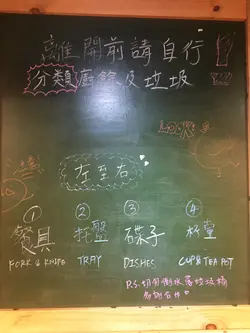 離開前請自行!!
分類廚餘及垃圾
LOOK
左至右
① ② ③ ④
餐具 托盤 碟子 杯壺
FORK & KNIFE TRAY DISHES CUP & TEA POT
P.S. 切勿倒水落垃圾桶